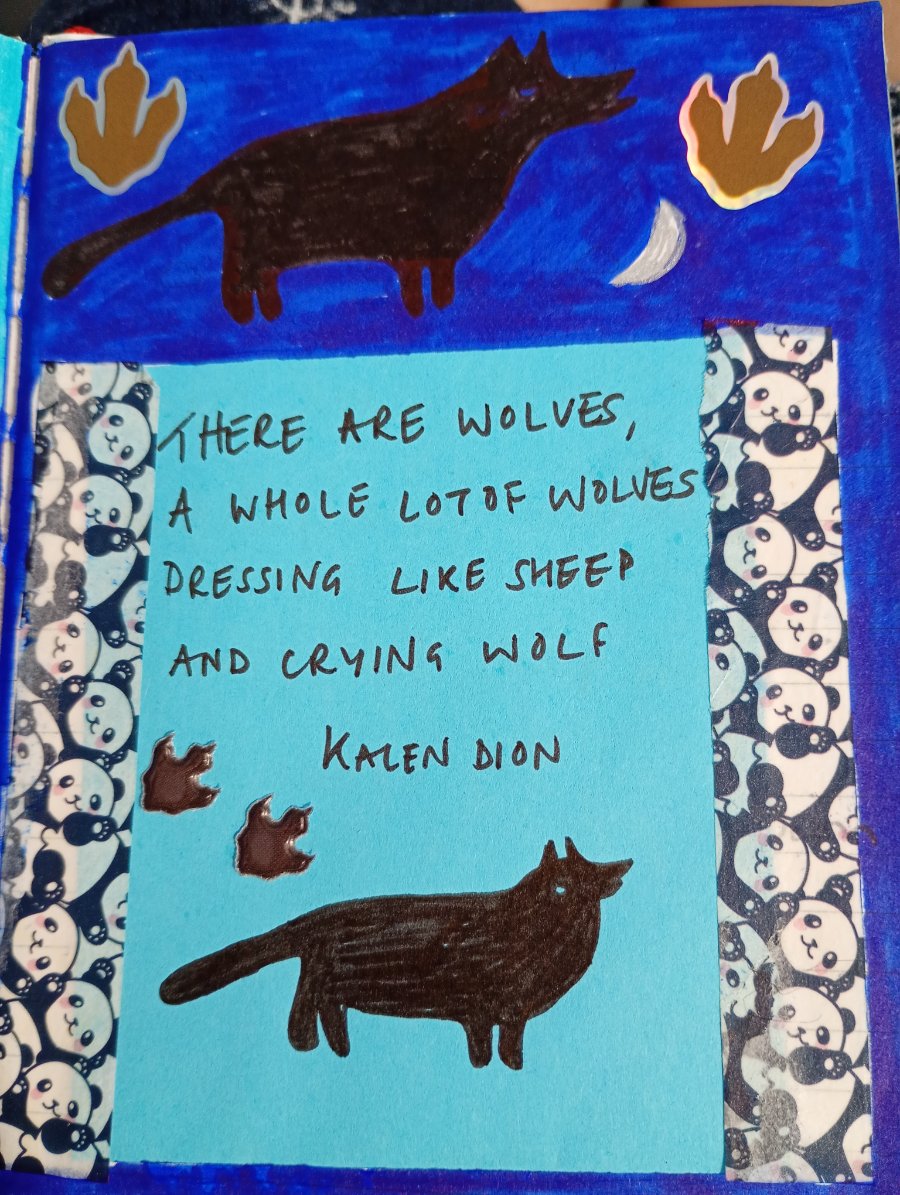 THERE ARE WOLVES,
A WHOLE LOT OF WOLVES
DRESSING LIKE SHEEP
AND CRYING WOLF
KALEN DION